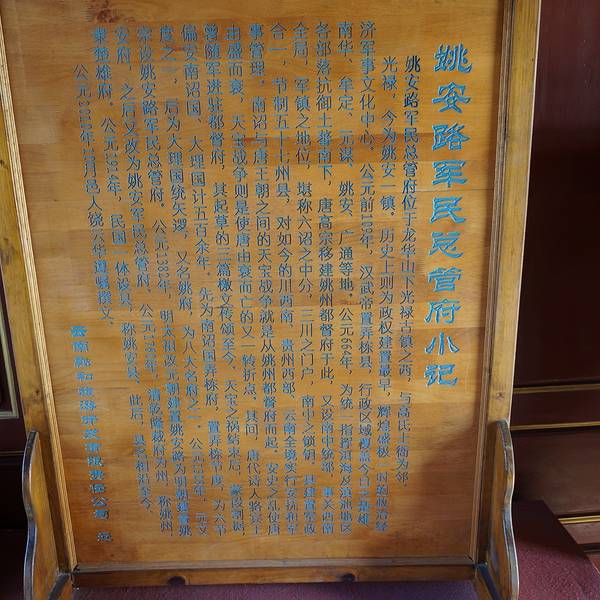 姚安路军民总管府小记
姚安路军民总管府位于龙华山下光禄古镇之西，与高氏土衙为邻
光禄，今为姚安一镇。历史上则为政权建置最早，辉煌盛极一时的政治经
济军事文化中心。公元前109年，汉武帝置弄栋县，行政区域覆盖今日之楚雄、
南华、牟定、元谋、姚安、广通等地。公元664年，为统一指挥洱海及滇池地区
各部落抗御土蕃南下，唐高宗移建姚州都督府于此，又设南中统部，事关西南
全局，军镇之地位，堪称六诏之中分，三川之门户，南中之锁钥，具建置军政
合一，节制五十七州县，对如今的川西南、贵州西部、云南全境实行安抚和军
事管理。南诏与唐王朝之间的天宝战争就是从姚州都督府而起。安史之乱使唐
由盛而衰，天宝战争则是使唐由衰而亡的又一转折点。其间，唐代诗人骆宾王
曾随军进驻都督府，其起草的三篇檄文传颂至今。天宝之祸结束后，蒙段割据，
偏安南诏国、大理国计五百余年，先为南诏国弄栋府，置弄栋节度，为六节
度之一，后为大理国统矢逻，又名姚府，为八大名府之一。公元
宗设姚安路军民总管府。公元1382年，明太祖改元朝建置姚安路为明朝建置姚
安府，之后又改为姚安军民总管府。公元 清乾隆裁府为州，称姚州，
隶楚雄府。公元1914年，民国一体设县，称姚安县，此后，县名相沿至今。
公元2010年12月邑人饶
云南 旅游开发有限责任公司